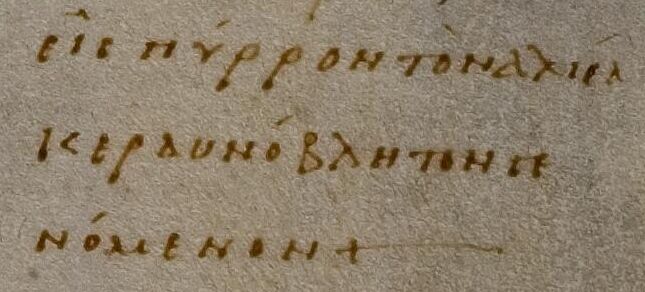 εἰς πύρρον τὸν ἁλιέα
κεραυνόβλητον γε
νόμενον +